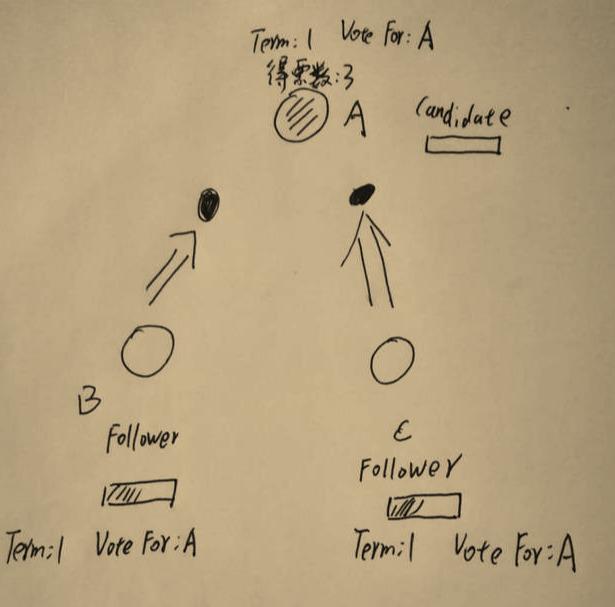 Term: 1 Vote For: A
得票数: 3
A
Candidate
B
Follower
Term: 1 Vote For: A
C
Follower
Term: 1 Vote For: A